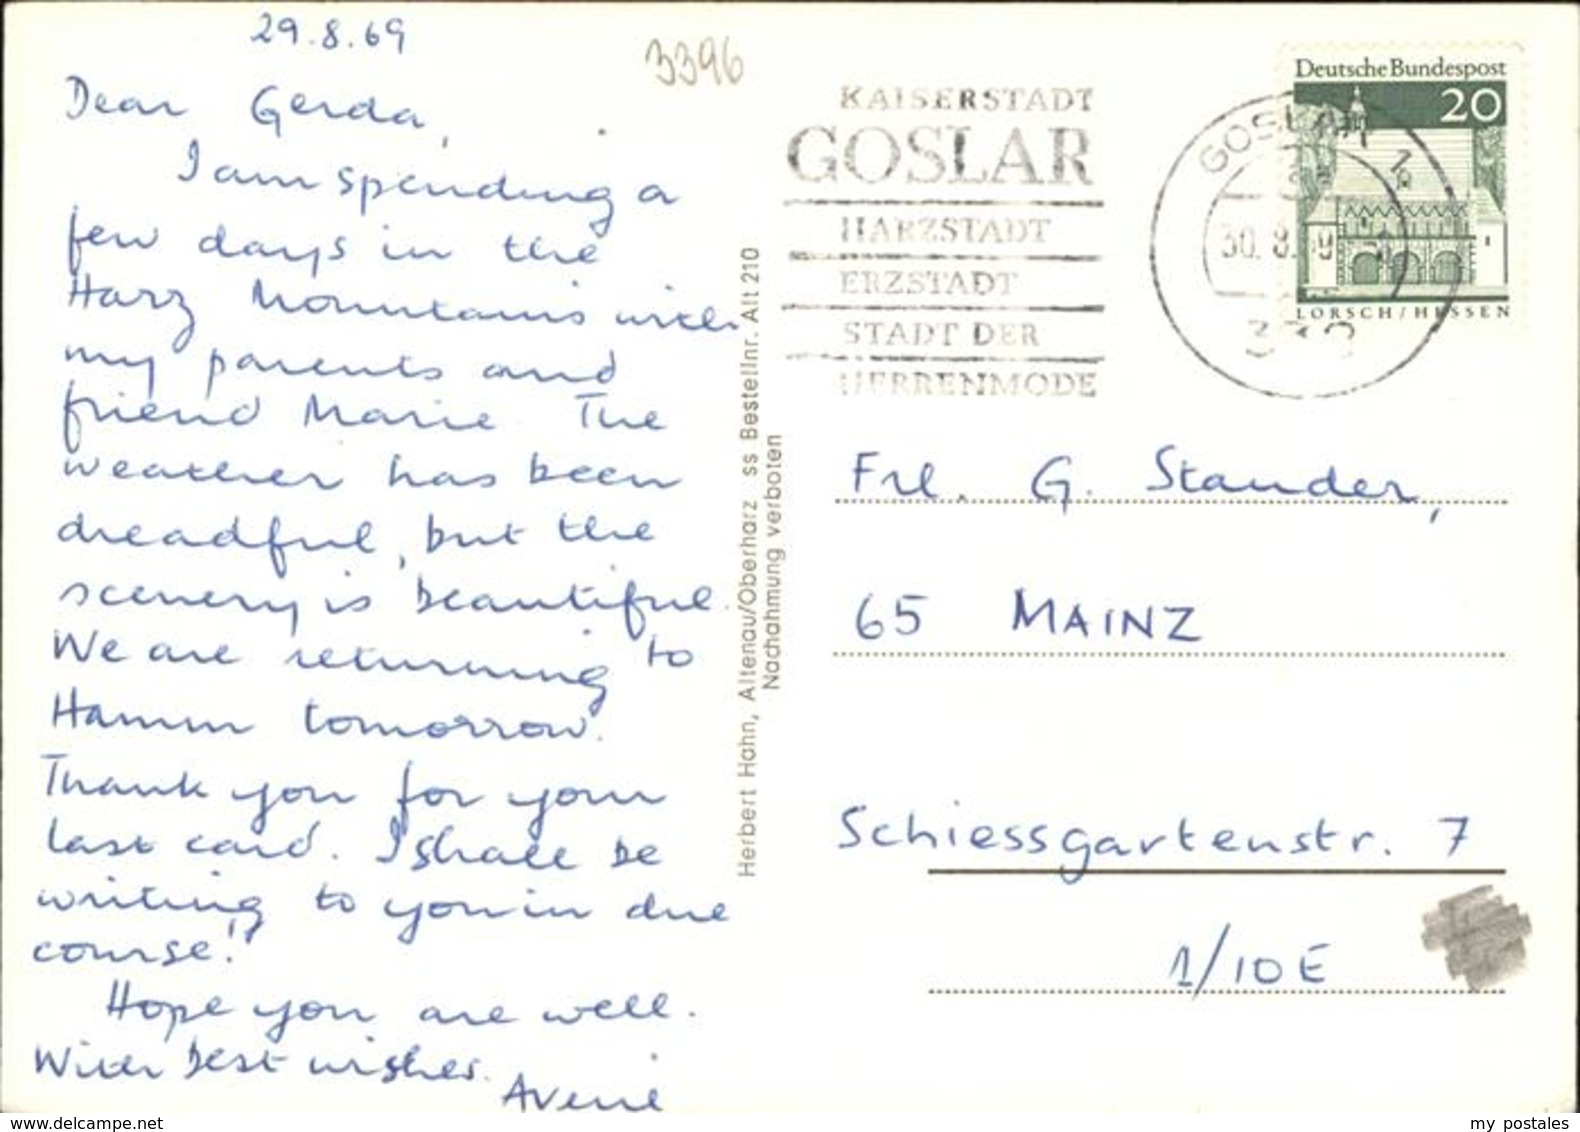 29.8.69
Dear Gerda,
I am spending a
few days in the
Harz Mountains with
my parents and
friend Marie. The
weather has been
dreadful, but the
scenery is beautiful.
We are returning to
Hamm tomorrow.
Thank you for your
last card. I shall be
writing to you in due
course!
Hope you are well.
With best wishes.
3396
Herbert Hahn, Altenau/Oberharz ss Bestellnr. Alt 210
Nachahmung verboten
KAISERSTADT
GOSLAR
HARZSTADT
ERZSTADT
STADT DER
HERRENMODE
GOSLAR 1
30. 8. 69
Deutsche Bundespost
20
LORSCH/HESSEN
Frl. G. Stander,
65 MAINZ
Schiessgartenstr. 7
1/10E
www.delcampe.net
my postales